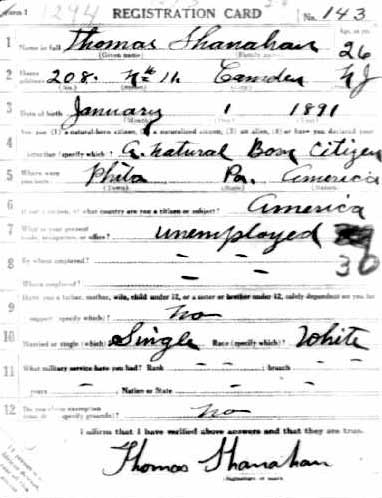 Form 1 1294 REGISTRATION CARD No. 143
1 Name in full Thomas Shanahan Age, in yrs. 26
(Given name) (Family name)
2 Home address 208. N 11 Camden NJ
(No.) (Street) (City) (State)
3 Date of birth January 1 1891
(Month) (Day) (Year)
4 Are you (1) a natural-born citizen, (2) a naturalized citizen, (3) an alien, (4) or have you declared your
intention (specify which)? A. Natural Born Citizen
5 Where were you born? Phila Pa. America
(Town) (State) (Nation)
6 If not a citizen, of what country are you a citizen or subject? America
7 What is your present trade, occupation, or office? unemployed
30
8 By whom employed? – –
Where employed? – –
9 Have you a father, mother, wife, child under 12, or a sister or brother under 12, solely dependent on you for
support (specify which)? No
10 Married or single (which)? Single Race (specify which)? White
11 What military service have you had? Rank – ; branch –
years – Nation or State –
12 Do you claim exemption from draft (specify grounds)? no
I affirm that I have verified above answers and that they are true.
Thomas Shanahan
(Signature or mark)